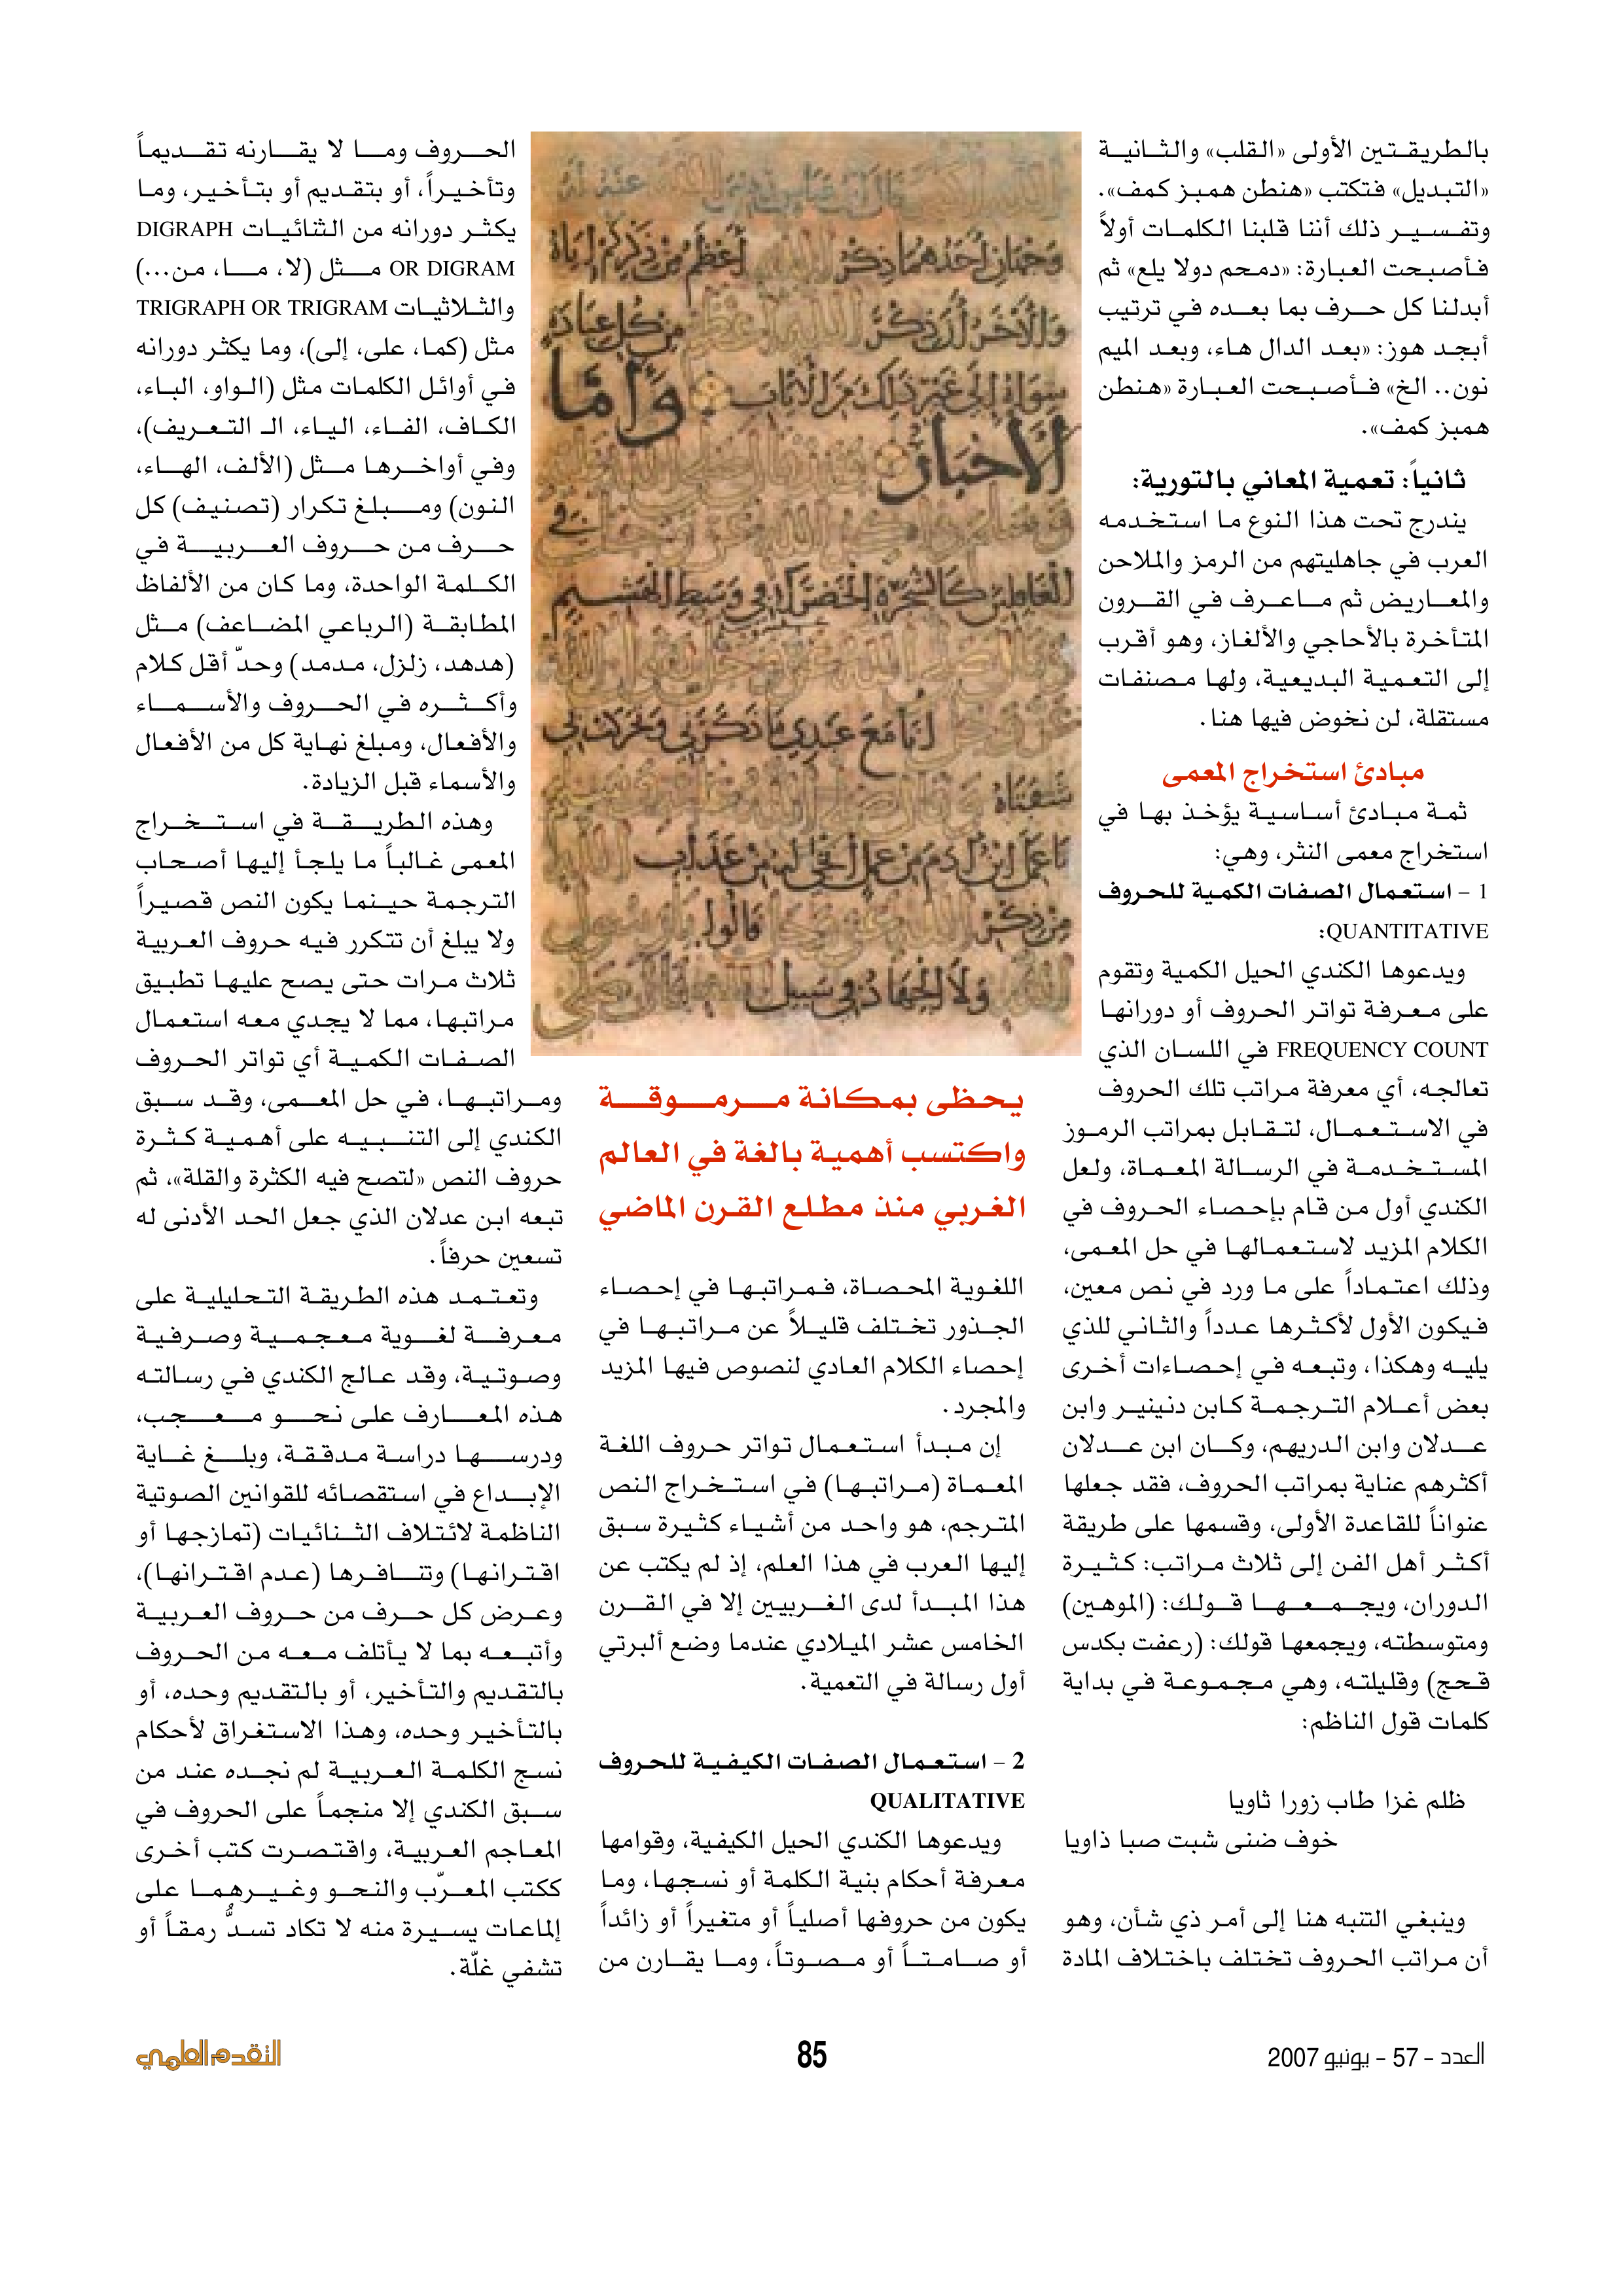 بالطريقتين الأولى «القلب» والثانية
«التبديل» فتكتب «هنطن همبز كمف».
وتفسير ذلك أننا قلبنا الكلمات أولاً
فأصبحت العبارة: «دمحم دولا يلع» ثم
أبدلنا كل حرف بما بعده في ترتيب
أبجد هوز: «بعد الدال هاء، وبعد الميم
نون.. الخ» فأصبحت العبارة «هنطن
همبز كمف».
ثانياً: تعمية المعاني بالتورية:
يندرج تحت هذا النوع ما استخدمه
العرب في جاهليتهم من الرمز والملاحن
والمعاريض ثم ماعرف في القرون
المتأخرة بالأحاجي والألغاز، وهو أقرب
إلى التعمية البديعية، ولها مصنفات
مستقلة، لن نخوض فيها هنا.
مبادئ استخراج المعمى
ثمة مبادئ أساسية يؤخذ بها في
استخراج معمى النثر، وهي:
1 – استعمال الصفات الكمية للحروف
QUANTITATIVE:
ويدعوها الكندي الحيل الكمية وتقوم
على معرفة تواتر الحروف أو دورانها
FREQUENCY COUNT في اللسان الذي
تعالجه، أي معرفة مراتب تلك الحروف
في الاستعمال، لتقابل بمراتب الرموز
المستخدمة في الرسالة المعماة، ولعل
الكندي أول من قام بإحصاء الحروف في
الكلام المزيد لاستعمالها في حل المعمى،
وذلك اعتماداً على ما ورد في نص معين،
فيكون الأول لأكثرها عدداً والثاني للذي
يليه وهكذا، وتبعه في إحصاءات أخرى
بعض أعلام الترجمة كابن دنينير وابن
عدلان وابن الدريهم، وكان ابن عدلان
أكثرهم عناية بمراتب الحروف، فقد جعلها
عنواناً للقاعدة الأولى، وقسمها على طريقة
أكثر أهل الفن إلى ثلاث مراتب: كثيرة
الدوران، ويجمعها قولك: (الموهين)
ومتوسطته، ويجمعها قولك: (رعفت بكدس
قحج) وقليلته، وهي مجموعة في بداية
كلمات قول الناظم:
ظلم غزا طاب زورا ثاويا
خوف ضنى شبت صبا ذاويا
وينبغي التنبه هنا إلى أمر ذي شأن، وهو
أن مراتب الحروف تختلف باختلاف المادة
يحظى بمكانة مرموقة
واكتسب أهمية بالغة في العالم
الغربي منذ مطلع القرن الماضي
اللغوية المحصاة، فمراتبها في إحصاء
الجذور تختلف قليلاً عن مراتبها في
إحصاء الكلام العادي لنصوص فيها المزيد
والمجرد.
إن مبدأ استعمال تواتر حروف اللغة
المعماة (مراتبها) في استخراج النص
المترجم، هو واحد من أشياء كثيرة سبق
إليها العرب في هذا العلم، إذ لم يكتب عن
هذا المبدأ لدى الغربيين إلا في القرن
الخامس عشر الميلادي عندما وضع ألبرتي
أول رسالة في التعمية.
2 – استعمال الصفات الكيفية للحروف
QUALITATIVE
ويدعوها الكندي الحيل الكيفية، وقوامها
معرفة أحكام بنية الكلمة أو نسجها، وما
يكون من حروفها أصلياً أو متغيراً أو زائداً
أو صامتاً أو مصوتاً، وما يقارن من
الحروف وما لا يقارنه تقديماً
وتأخيراً، أو بتقديم أو بتأخير، وما
يكثر دورانه من الثنائيات DIGRAPH
OR DIGRAM مثل (لا، ما، من...)
والثلاثيات TRIGRAPH OR TRIGRAM
مثل (كما، على، إلى)، وما يكثر دورانه
في أوائل الكلمات مثل (الواو، الباء،
الكاف، الفاء، الياء، الـ التعريف)،
وفي أواخرها مثل (الألف، الهاء،
النون) ومبلغ تكرار (تصنيف) كل
حرف من حروف العربية في
الكلمة الواحدة، وما كان من الألفاظ
المطابقة (الرباعي المضاعف) مثل
(هدهد، زلزل، مدمد) وحدّ أقل كلام
وأكثره في الحروف والأسماء
والأفعال، ومبلغ نهاية كل من الأفعال
والأسماء قبل الزيادة.
وهذه الطريقة في استخراج
المعمى غالباً ما يلجأ إليها أصحاب
الترجمة حينما يكون النص قصيراً
ولا يبلغ أن تتكرر فيه حروف العربية
ثلاث مرات حتى يصح عليها تطبيق
مراتبها، مما لا يجدي معه استعمال
الصفات الكمية أي تواتر الحروف
ومراتبها، في حل المعمى، وقد سبق
الكندي إلى التنبيه على أهمية كثرة
حروف النص «لتصح فيه الكثرة والقلة»، ثم
تبعه ابن عدلان الذي جعل الحد الأدنى له
تسعين حرفاً.
وتعتمد هذه الطريقة التحليلية على
معرفة لغوية معجمية وصرفية
وصوتية، وقد عالج الكندي في رسالته
هذه المعارف على نحو معجب،
ودرسها دراسة مدققة، وبلغ غاية
الإبداع في استقصائه للقوانين الصوتية
الناظمة لائتلاف الثنائيات (تمازجها أو
اقترانها) وتنافرها (عدم اقترانها)،
وعرض كل حرف من حروف العربية
وأتبعه بما لا يأتلف معه من الحروف
بالتقديم والتأخير، أو بالتقديم وحده، أو
بالتأخير وحده، وهذا الاستغراق لأحكام
نسج الكلمة العربية لم نجده عند من
سبق الكندي إلا منجماً على الحروف في
المعاجم العربية، واقتصرت كتب أخرى
ككتب المعرّب والنحو وغيرهما على
إلماعات يسيرة منه لا تكاد تسدُّ رمقاً أو
تشفي غلّة.
العدد – 57 – يونيو 2007
85
التقدم العلمي